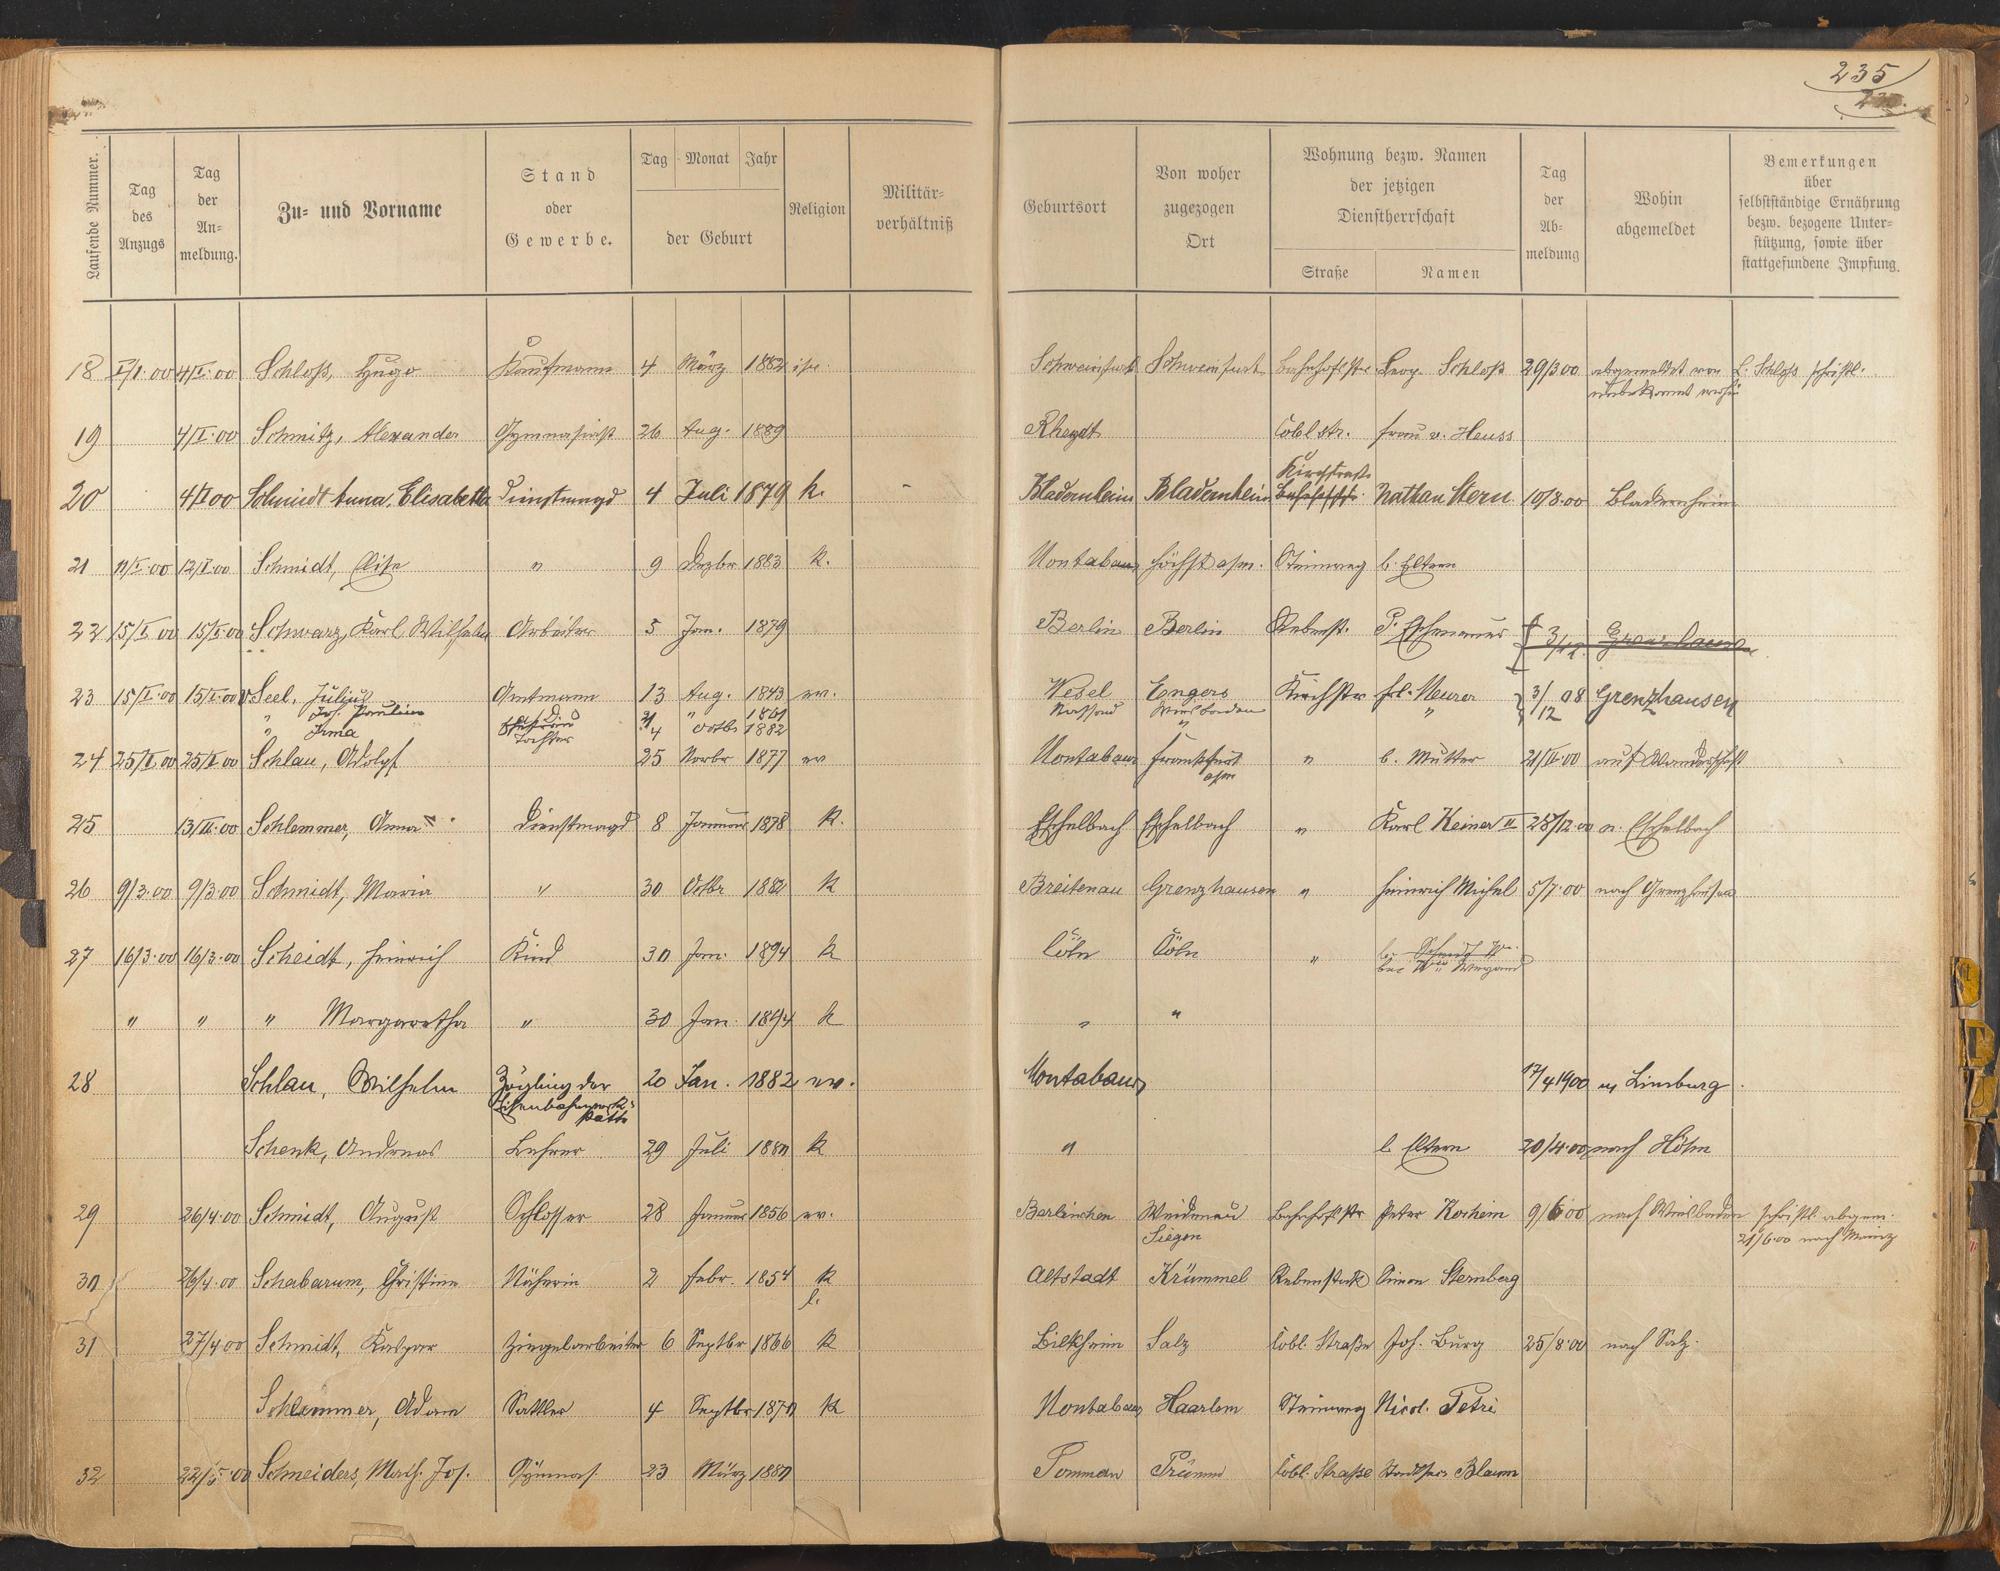 235
Laufende Nummer. Tag des Anzugs Tag der An-meldung. Zu- und Vorname Stand oder Gewerbe. Tag Monat Jahr der Geburt Religion Militär-verhältniß Geburtsort Von woher zugezogen Ort Wohnung bezw. Namen der jetzigen Dienstherrschaft Straße Namen Tag der Ab-meldung Wohin abgemeldet Bemerkungen über selbstständige Ernährung bezw. bezogene Unter-stützung, sowie über stattgefundene Impfung.
18 1/I.00 4/I.00 Schloß, Hugo Kaufmann 4 März 1882 isr. Schweinfurt Schweinfurt Bahnhofstr Leop. Schloß 29/3 00 abgemeldet von L. Schloss schriftl.
unbekannt wohin
19 4/I.00 Schmitz, Alexander Gymnasiast 26 Aug. 1889 Rheydt Cobl str. Frau v. Heuss
Kirchstraße
20 4/II 00 Schmidt Anna, Elisabetha Dienstmagd 4 Juli 1879 k. - Bladernheim Bladernheim Bahnhofstr. Nathan Stern 10/8.00 Bladernheim
21 11/I.00 12/I.00 Schmidt, Elise " 9 Dezbr 1883 k. Montabaur Höchst a/m. Steinweg b. Eltern
22 15/I.00 15/I.00 Schwarz, Karl Wilhelm Arbeiter 5 Jan. 1879 Berlin Berlin Rebenst. P. 3/12.
23 15/I.00 15/I.00 Seel, Julius Amtmann 13 Aug. 1843 ev. Wesel Engers Kirchstr Frl. Meurer 3/12 08 Grenzhausen
" Joh. Pauline Ehefrau 21 " 1861 Nassau Wiesbaden "
" Irma Tochter 4 Octbr 1882 "
24 25/I.00 25/I.00 Schlau, Adolf 25 Novbr 1877 ev Montabaur Frankfurt a/m " b. Mutter 21/II.00 auf Wanderschaft
25 13/II.00 Schlemmer, Anna Dienstmagd 8 Januar 1878 k. Eschelbach Eschelbach " Karl Keiner II 28/12.00 n. Eschelbach
26 9/3.00 9/3.00 Schmidt, Maria " 30 Octbr 1882 k Breitenau Grenzhausen " Heinrich Michel 5/7.00 nach Grenzhausen
27 16/3.00 16/3.00 Scheidt, Heinrich Kind 30 Jan. 1894 k Cöln Cöln " b. Schmidt We.
bei Wwe Wiegand
" " " Margaretha " 30 Jan. 1894 k " "
28 Schlau, Wilhelm Zögling der 20 Jan. 1882 ev. Montabaur 17/4 1900 n. Limburg.
Eisenbahnwerk-
stätte
Schenk, Andreas Lehrer 29 Juli 1880 k " b Eltern 20/4.00 nach Höhn
29 26/4.00 Schmidt, August Schlosser 28 Januar 1856 ev. Berlinchen Weidenau Bahnhofstr Peter Korhein 9/6 00 nach Wiesbaden schriftl. abgem.
Siegen 21/6.00 nach Mainz
30 26/4.00 Schabarum, Christine Näherin 2 Febr. 1854 k Altstadt Krümmel Rebenstock Simon Sternberg
l.
31 27/4 00 Schmidt, Kaspar Ziegelarbeiter 6 Septbr 1866 k Bilkheim Salz Cobl. Straße Joh. Burg 25/8.00 nach Salz.
Schlemmer, Adam Sattler 4 Septbr 1870 k Montabaur Haarlem Steinweg Nicol. Petri
32 22/5.00 Schneiders, Math. Jos. Gymnas. 23 März 1880 Pomman Prümm Cobl. Straße Blaum